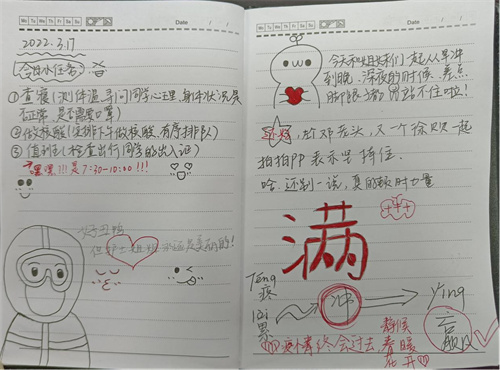 Mo Tu We Th Fr Sa Su
Date / /
2022.3.17
今日小任务
①查寝(测体温寻问同学心理、身体状况是
否正常,是否需要口罩)
②做核酸(安排下午做核酸,有序排队)
③值班(检查出行同学的出入证)
嘿嘿!!!是7:30-10:00!!!
好丑鸭
Mo Tu We Th Fr Sa Su
Date / /
今天和姐妹们一起从早冲
到晚,深夜的时候,差点
脚跟都要站不住啦!
还好,
拍拍PP表示坚持住.
哈.还别一说,真的顿时力量
满
Teng
疼
lei
累
冲
Ying
赢
疫情终会过去
静候
春暖
花开